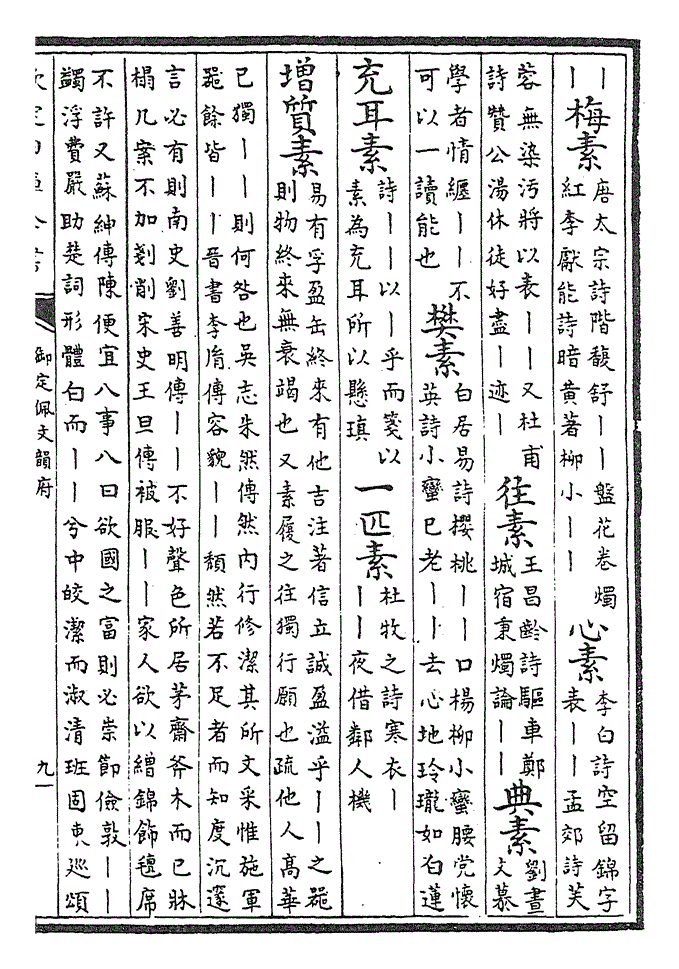 丨丨
梅素
唐太宗詩階馥舒丨丨盤花卷燭
紅李厭能詩暗黄著柳小丨丨
心素
李白詩空留錦字
表丨丨孟郊詩芙
蓉無染污將以表丨丨又杜甫
詩贊公湯休徒好盡丨迹丨
往素
王昌齡詩驅車鄭
城宿秉燭論丨丨
典素
劉晝
文慕
學者情纒丨丨不
可以一讀能也
樊素
白居易詩櫻桃丨丨口楊柳小蠻腰党懷
英詩小蠻已老丨丨去心地玲瓏如白蓮
充耳素
詩丨丨以丨乎而箋以
素為充耳所以懸瑱
一匹素
杜牧之詩寒衣丨
丨丨夜借鄰人機
增質素
易有孚盈缶終來有他吉注著信立誠盈溢乎丨丨之器
則物終來無衰竭也又素履之往獨行願也疏他人髙華
已獨丨丨則何咎也吳志朱然傳然内行修潔其所文采惟施軍
器餘皆丨丨晉書李胤傳容貌丨丨頽然若不足者而知度沉邃
言必有則南史劉善明傳丨丨不好聲色所居茅齋斧木而已牀
榻几案不加剗削宋史王旦傳被服丨丨家人欲以繒錦飾氊席
不許又蘇紳傳陳便宜八事八曰欲國之富則必崇節儉敦丨丨
蠲浮費嚴助楚詞形體白而丨丨兮中皎潔而淑清班固東巡頌
欽定四庫全書
御定佩文韻府
九一